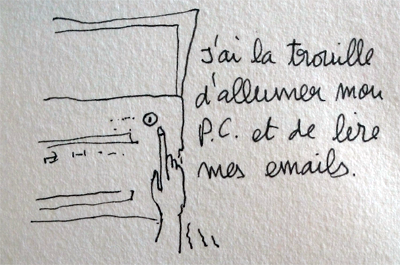 J'ai la trouille
d'allumer mon
P.C. et de lire
mes emails.